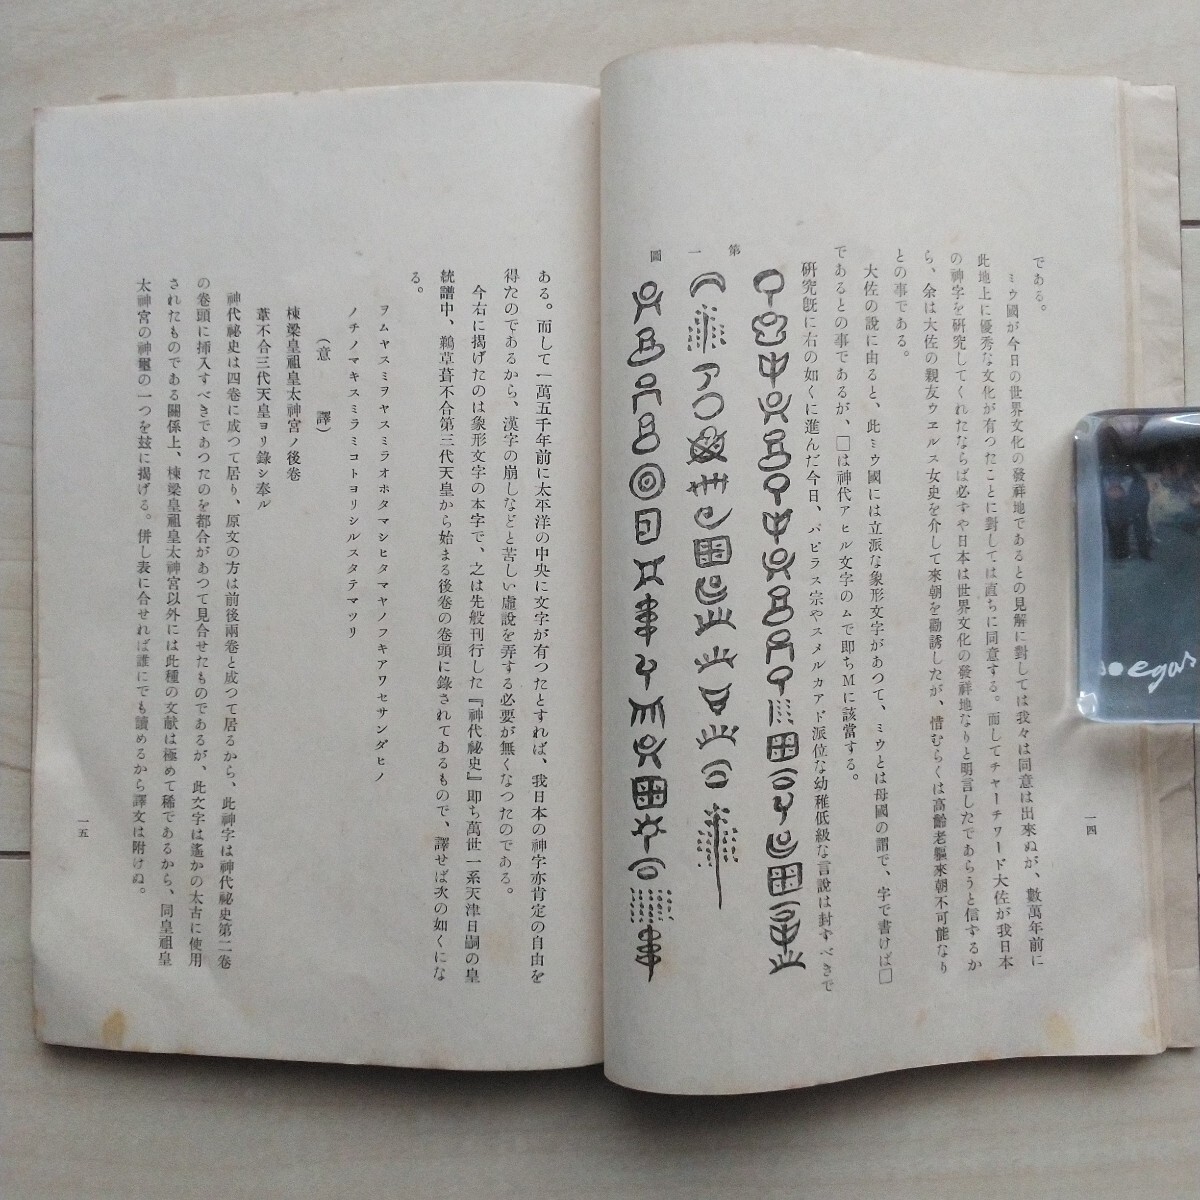 である。
ミウ國が今日の世界文化の發祥地であるとの見解に對しては我々は同意は出來ぬが、數萬年前に
此地上に優秀な文化が有つたことに對しては直ちに同意する。而してチャーチワード大佐が我日本
の神字を硏究してくれたならば必ずや日本は世界文化の發祥地なりと明言したであらうと信するか
ら、余は大佐の親友ウエルス女史を介して來朝を勸誘したが、惜むらくは高齡老軀來朝不可能なり
との事である。
大佐の說に由ると、此ミウ國には立派な象形文字があつて、ミウとは母國の謂で、字で書けば□
であるとの事であるが、□は神代アヒル文字のムで卽ちMに該當する。
硏究旣に右の如くに進んだ今日、パピラス宗やスメルカアド派位な幼稚低級な言說は封すべきで
第一圖
一四
ある。而して一萬五千年前に太平洋の中央に文字が有つたとすれば、我日本の神字亦肯定の自由を
得たのであるから、漢字の崩しなどと苦しい虛說を弄する必要が無くなつたのである。
今右に揭げたのは象形文字の本字で、之は先般刊行した『神代祕史』卽ち萬世一系天津日嗣の皇
統譜中、鵜草葺不合第三代天皇から始まる後卷の卷頭に錄されてあるもので、譯せば次の如くにな
る。
ヲムヤスミヲヤスミラオホタマシヒタマヤノフキアワセサンダヒノ
ノチノマキスミラミコトヨリシルスタテマツリ
(意譯)
棟梁皇祖皇太神宮ノ後卷
葺不合三代天皇ヨリ錄シ奉ル
神代祕史は四卷に成つて居り、原文の方は前後兩卷と成つて居るから、此神字は神代祕史第二卷
の卷頭に揷入すべきであつたのを都合があつて見合せたものであるが、此文字は遙かの太古に使用
されたものである關係上、棟梁皇祖皇太神宮以外には此種の文献は極めて稀であるから、同皇祖皇
太神宮の神璽の一つを玆に揭げる。倂し表に合せれば誰にでも讀めるから譯文は附けぬ。
一五
egas